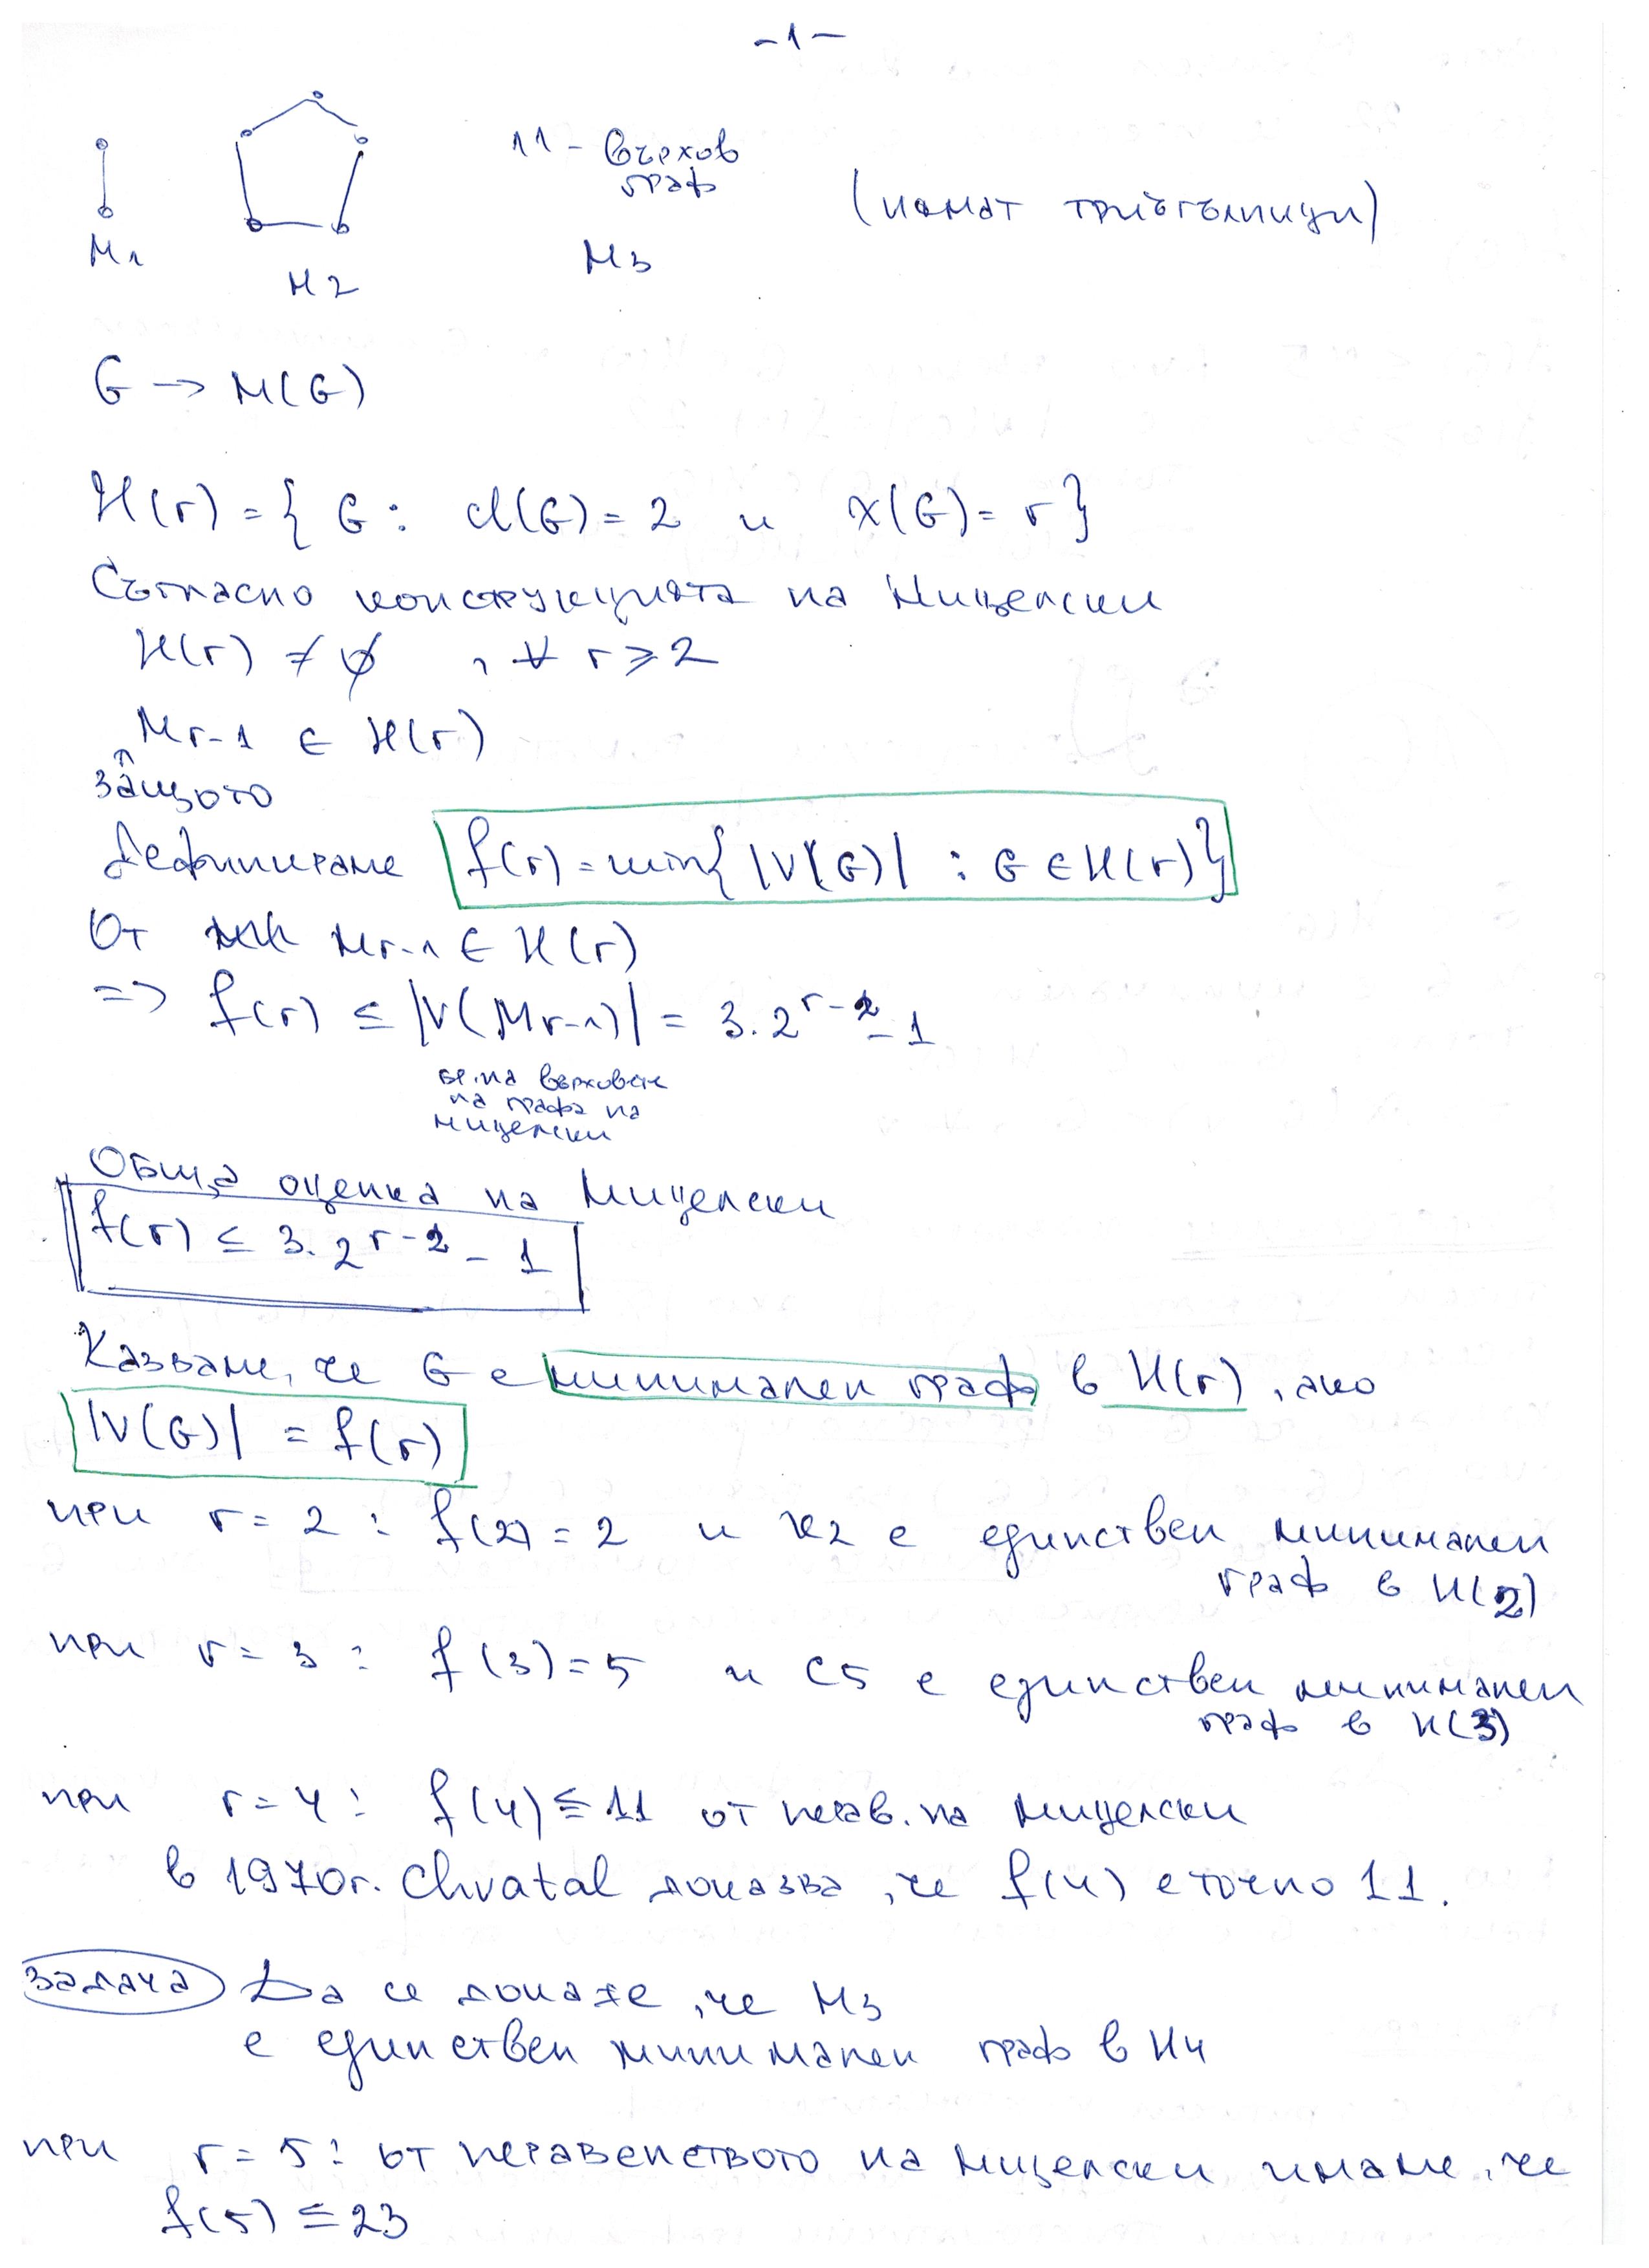 -1-
11-върхов
граф
(нямат триъгълници)
M1
M2
M3
G → M(G)
H(r) = { G : cl(G) = 2 и χ(G) = r }
Съгласно конструкцията на Мицелски
H(r) ≠ ∅ , ∀ r ≥ 2
Mr-1 ∈ H(r)
↑
защото
Дефинираме f(r) = min{ |V(G)| : G ∈ H(r) }
От Mr-1 ∈ H(r)
=> f(r) ≤ |V(Mr-1)| = 3.2^{r-2} - 1
бр. на върховете
на графа на
Мицелски
Обща оценка на Мицелски
f(r) ≤ 3.2^{r-2} - 1
Казваме, че G е минимален граф в H(r), ако
|V(G)| = f(r)
при r = 2 : f(2) = 2 и K2 е единствен минимален
граф в H(2)
при r = 3 : f(3) = 5 и C5 е единствен минимален
граф в H(3)
при r = 4 : f(4) ≤ 11 от нерав. на Мицелски
в 1970г. Chvatal доказва, че f(4) е точно 11.
Задача Да се докаже, че M3
е единствен минимален граф в H4
при r = 5 : от неравенството на Мицелски имаме, че
f(5) ≤ 23